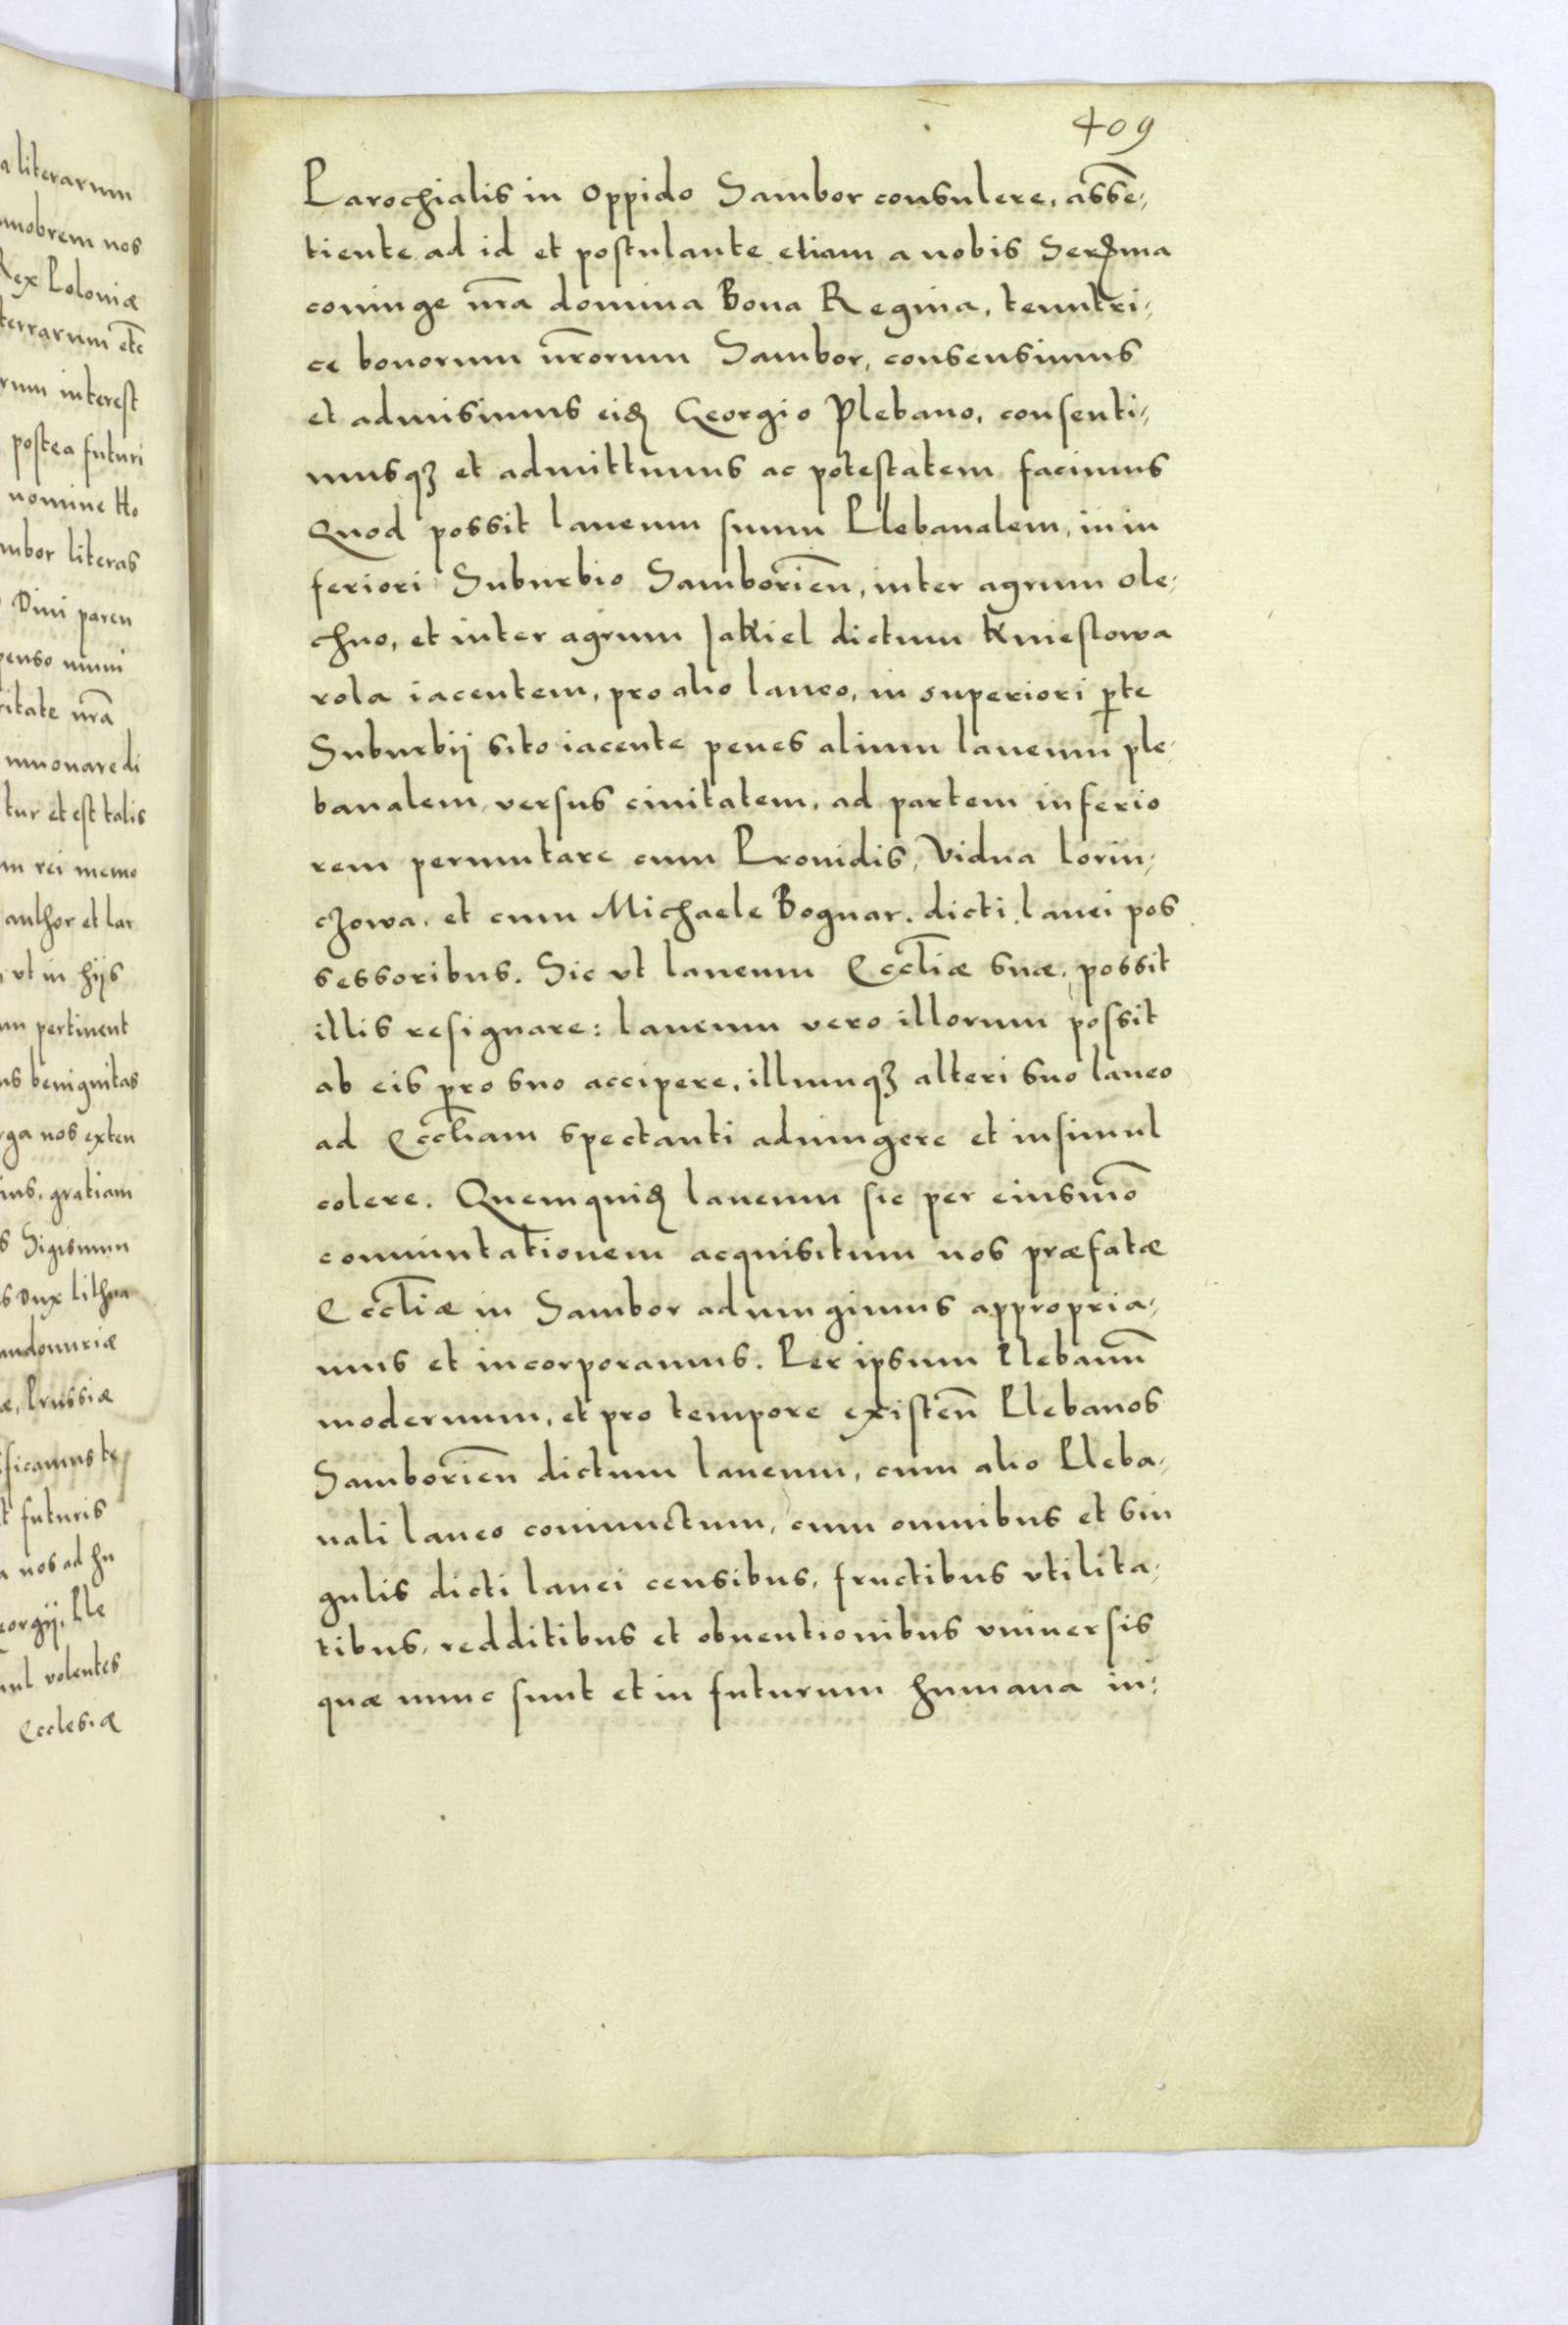 a literarum
mobrem nos
Rex Poloniæ
terrarum etc̄
rum interest
postea futuri
nomine tto
mbor literas
Diui paren
penso muni
ritate nr̄a
innouare di
tur et est talis
m rei memo
author et lar
vt in hijs
um pertinent
us benignitas
rga nos exten
ius, gratiam
s Sigismun
s Dux lithua
andomiriæ
æ, Prussiæ
ificamus te
t futuris
a nos ad hu
eorgij, Ple
ul volentes
Ecclesiæ
409
Parochialis in oppido Sambor consulere, assē,
tiente ad id et postulante etiam a nobis Serꝰma
coniuge nr̄a domina Bona Regina, tenutri,
ce bonorum nr̄orum Sambor, consensimus
et admisimus eidꝫ Georgio Plebano, consenti,
musqꝫ et admittimus ac potestatem facimus
Quod possit laneum suum Plebanalem, in in
feriori Suburbio Samborień, inter agrum Ole,
chno, et inter agrum Jakiel dictum Kmiestowa
rola iacentem, pro alio laneo, in superiori p̲te
Suburbij sito iacente penes alium laneum ple,
banalem versus ciuitatem, ad partem inferio
rem permutare cum Pronidis, Vidua lorin,
czowa, et cum Michaele Bognar, dicti lanei pos
sessoribus. Sic vt laneum Eccl̄iæ suæ, possit
illis resignare: laneum vero illorum possit
ab eis pro suo accipere, illumqꝫ alteri suo laneo
ad Eccl̄iam spectanti adiungere et insimul
colere. Quemquidꝫ laneum sic per eiusmo͞
commutationem acquisitum nos præfatæ
Eccl̄iæ in Sambor adiungimus appropria,
mus et incorporamus. Per ipsum Plebanū
modernum, et pro tempore existeñ Plebanos
Samborień dictum laneum, cum alio Pleba,
nali laneo coniunctum, cum omnibus et sin
gulis dicti lanei censibus, fructibus vtilita,
tibus, redditibus et obuentionibus vniuersis
quæ nunc sunt et in futurum humana in: